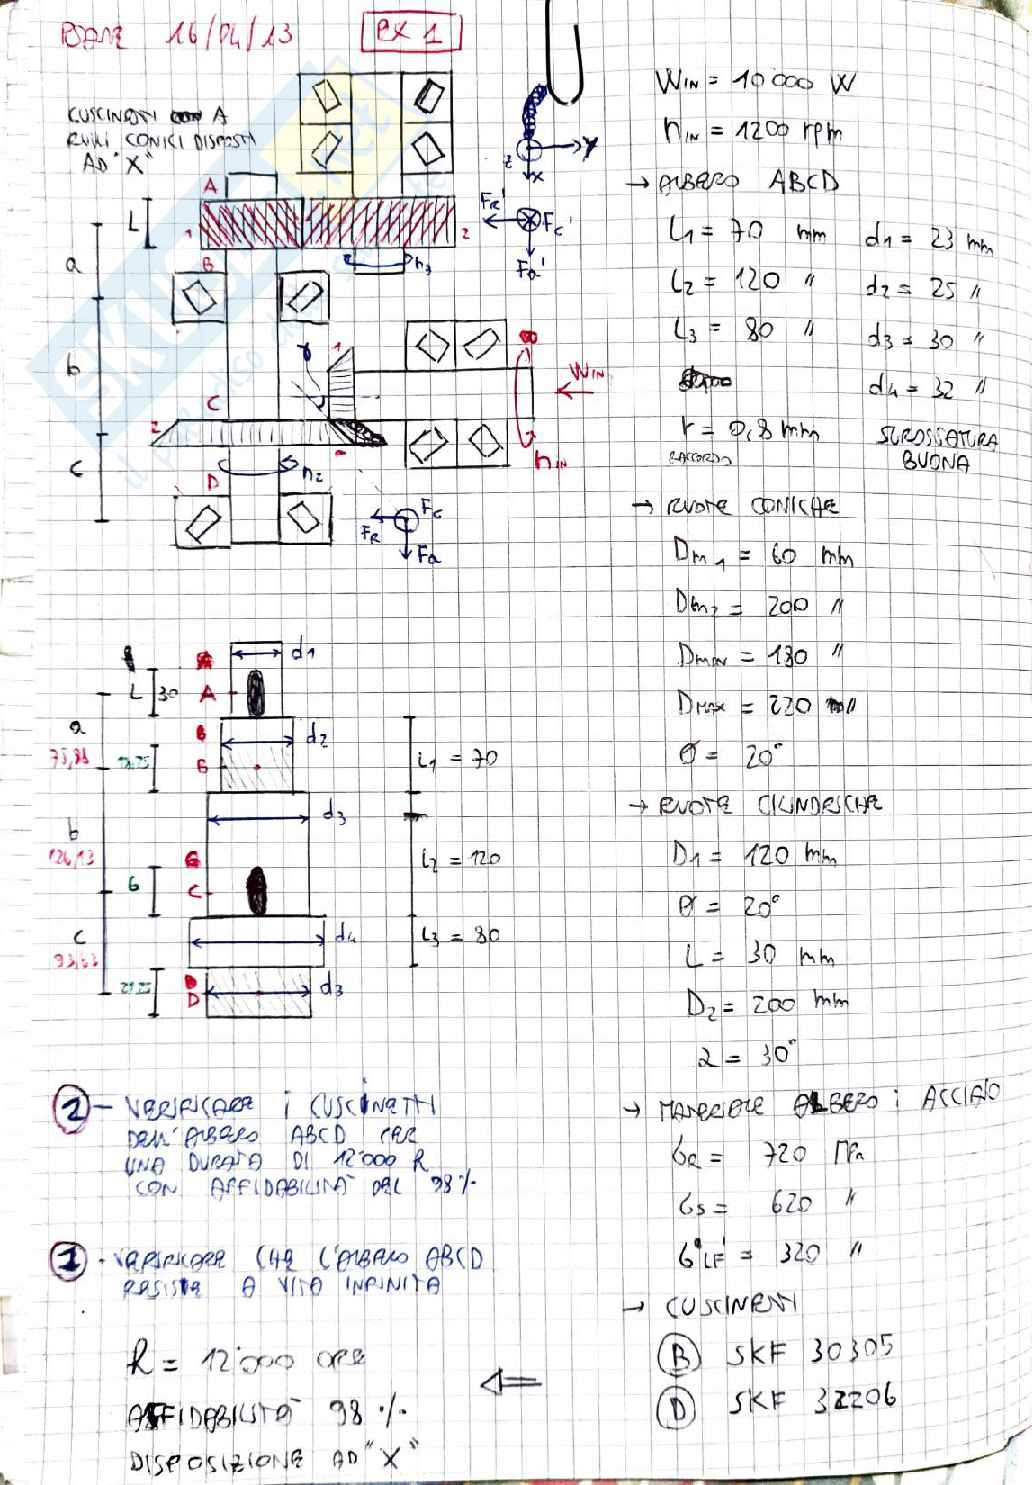 16/04/13
EX 1
CUSCINETTI A
RULLI CONICI DISPOSTI
AD "X"
A
L
1
2
B
n3
a
b
c
z
Y
X
FR'
Fc'
Fa'
γ
1
WIN
C
2
nIN
D
n2
FR
Fc
Fa
WIN = 10000 W
nIN = 1200 rpm
→ ALBERO ABCD
L1 = 70 mm d1 = 23 mm
L2 = 120 " d2 = 25 "
L3 = 80 " d3 = 30 "
d4 = 32 "
r = 0,8 mm
RACCORDO
SGROSSATURA
BUONA
→ RUOTE CONICHE
Dm1 = 60 mm
Dm2 = 200 "
Dmin = 180 "
DMAX = 220 "
θ = 20°
→ RUOTE CILINDRICHE
D1 = 120 mm
θ = 20°
L = 30 mm
D2 = 200 mm
α = 30°
→ MATERIALE ALBERO : ACCIAIO
σR = 720 MPa
σs = 620 "
σ'LF = 320 "
→ CUSCINETTI
B SKF 30305
D SKF 32206
d1
L 30 A
a
d2
B
L1 = 70
d3
b
126,13
6 C
L2 = 120
c
d4
L3 = 80
D
d3
2 - VERIFICARE I CUSCINETTI
DELL'ALBERO ABCD PER
UNA DURATA DI 12'000 R
CON AFFIDABILITÀ DEL 98 %
1 - VERIFICARE CHE L'ALBERO ABCD
RESISTE A VITA INFINITA
R = 12'000 ORE
AFFIDABILITÀ 98 %
DISPOSIZIONE AD "X"